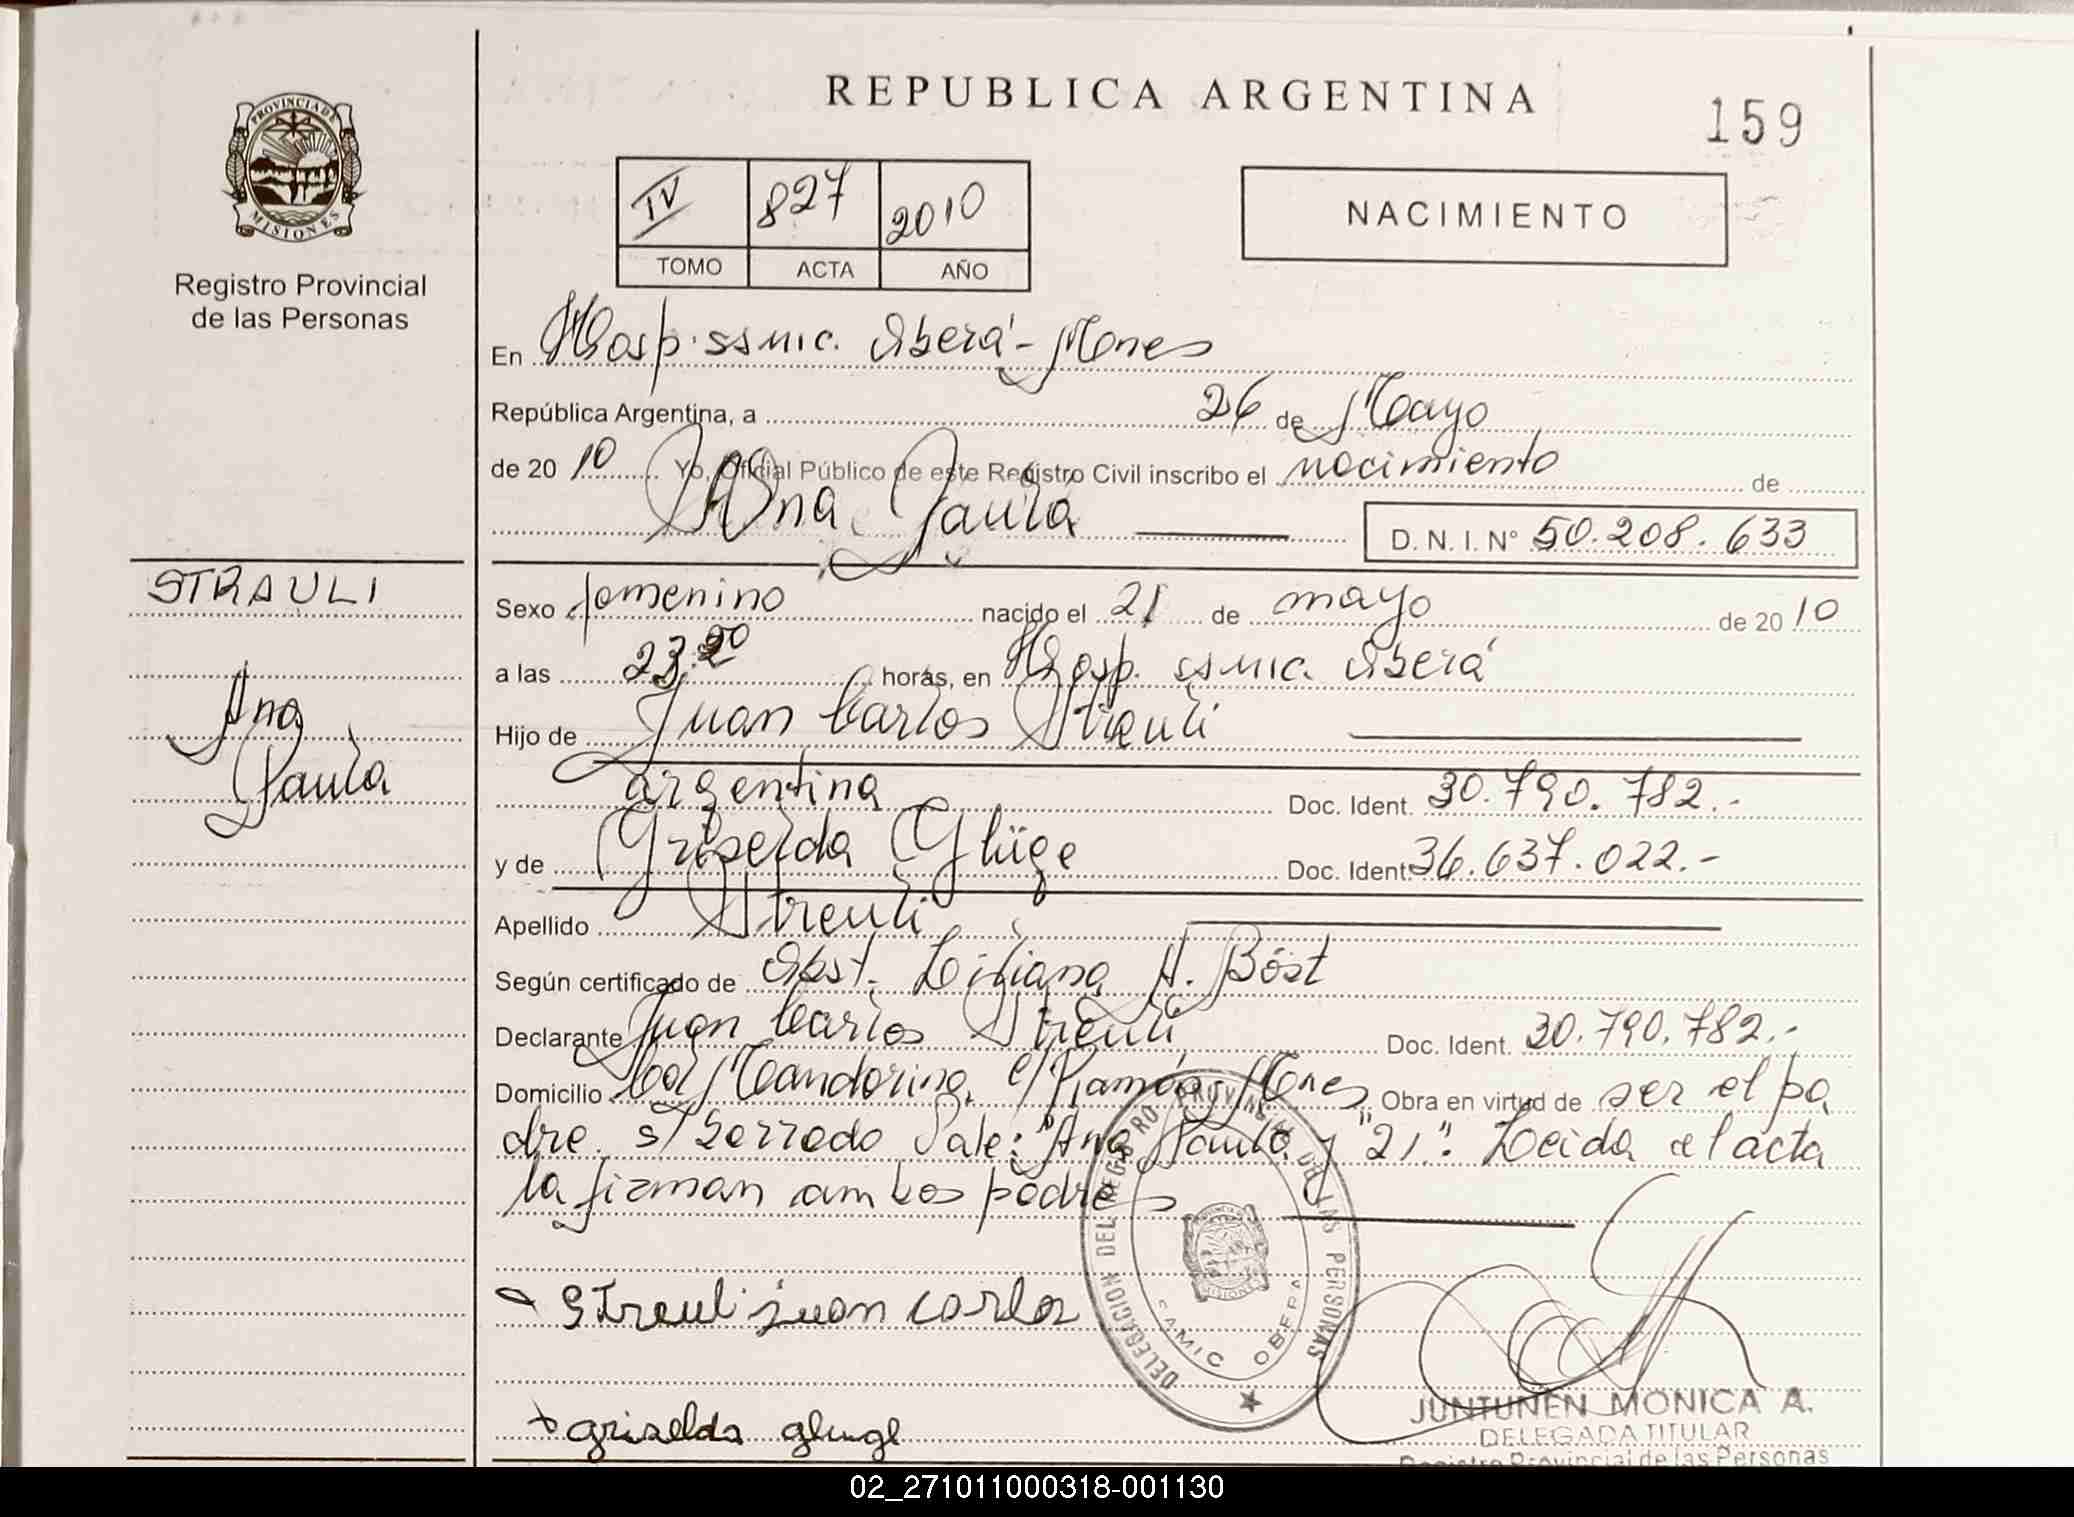 REPUBLICA ARGENTINA
159
PROVINCIA DE
MISIONES
Registro Provincial
de las Personas
IV 827 2010
TOMO ACTA AÑO
NACIMIENTO
En Hosp. ssmic. Oberá - Mones
República Argentina, a 26 de Mayo
de 20 10 Yo, Oficial Público de este Registro Civil inscribo el nacimiento de
Ana Paula
D. N. I. N° 50.208.633
STRAULI
Ana
Paula
Sexo femenino nacido el 21 de mayo de 20 10
a las 23:20 horas, en Hosp. ssmic. Oberá
Hijo de Juan Carlos Streuli
argentina Doc. Ident. 30.790.782.-
y de Griselda Glüge Doc. Ident. 36.637.022.-
Apellido Streuli
Según certificado de Obst. Liliana H. Bóst
Declarante Juan Carlos Streuli Doc. Ident. 30.790.782.-
Domicilio Col Mandarina, C/Ramón, Mones, Obra en virtud de ser el pa
dre. s/borrado Vale: "Ana Paula y "21". Leida el acta
la firman ambos padres
Streuli juan carlos
griselda gluge
DELEGACION DEL REGISTRO PROVINCIAL DE LAS PERSONAS
SAMIC OBERA
MISIONES
JUNTUNEN MONICA A.
DELEGADA TITULAR
Registro Provincial de las Personas
02_271011000318-001130